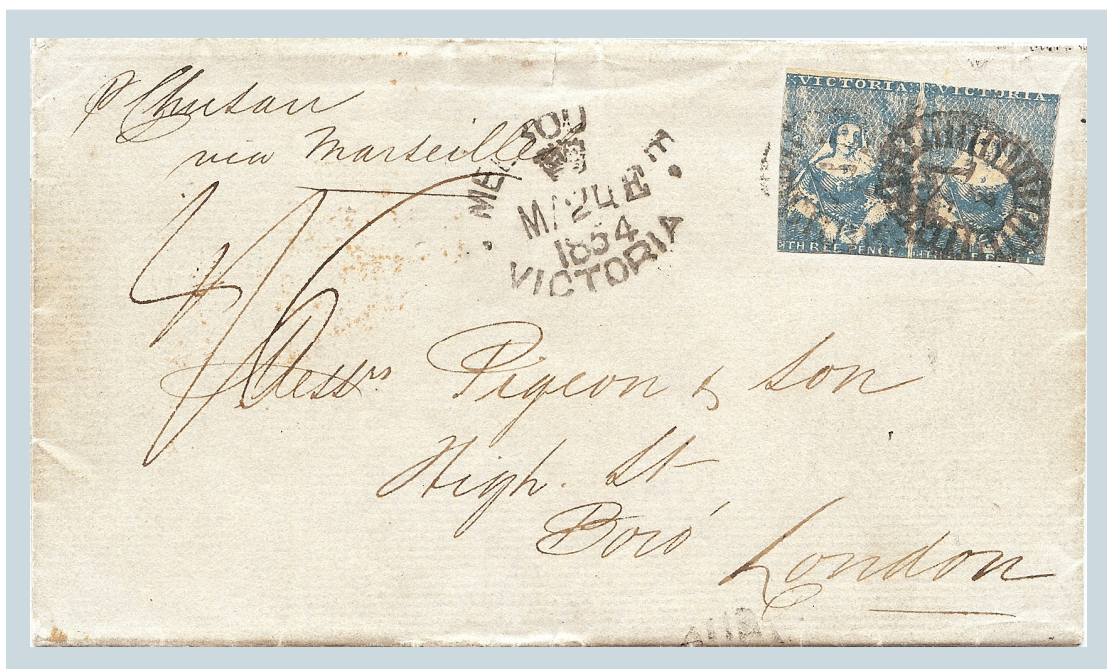 p Chusan
via Marseille
MELBOU E
MA 24 E
1854
VICTORIA
VICTORIA VICTORIA
THREE PENCE
Messrs Pigeon & Son
High. St
Boro'
London